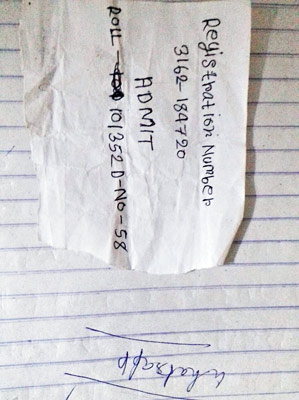 Registration Number
3162-184720
ADMIT
ROLL - 101352 D-NO-58
Whatsapp